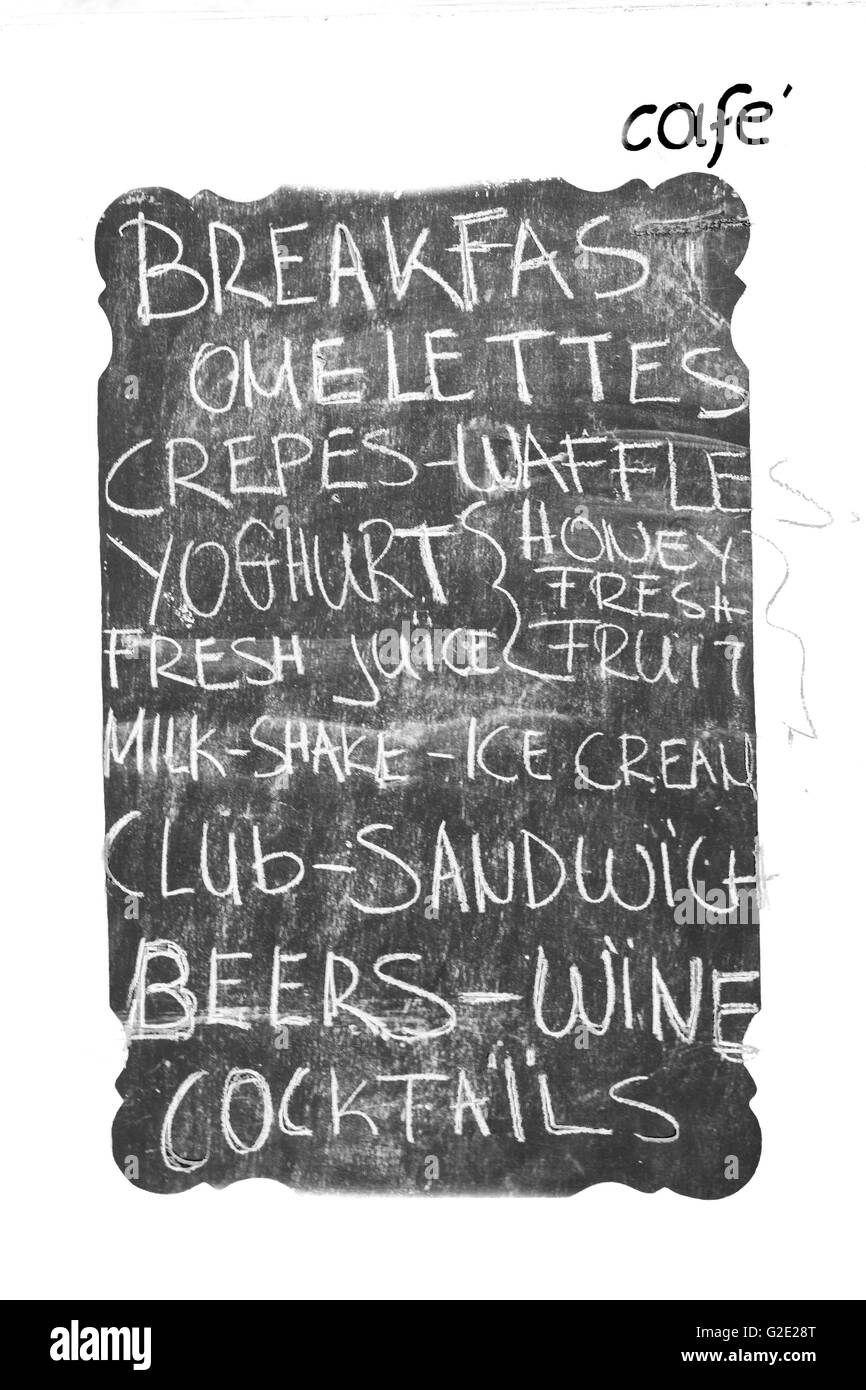 café
BREAKFAST
OMELETTES
CREPES-WAFFLES
YOGHURT { HONEY
FRESH
FRESH JUICE FRUIT
MILK-SHAKE-ICE CREAM
CLUb-SANDWICH
BEERS-WINE
COCKTAILS
alamy
Image ID: G2E28T
www.alamy.com